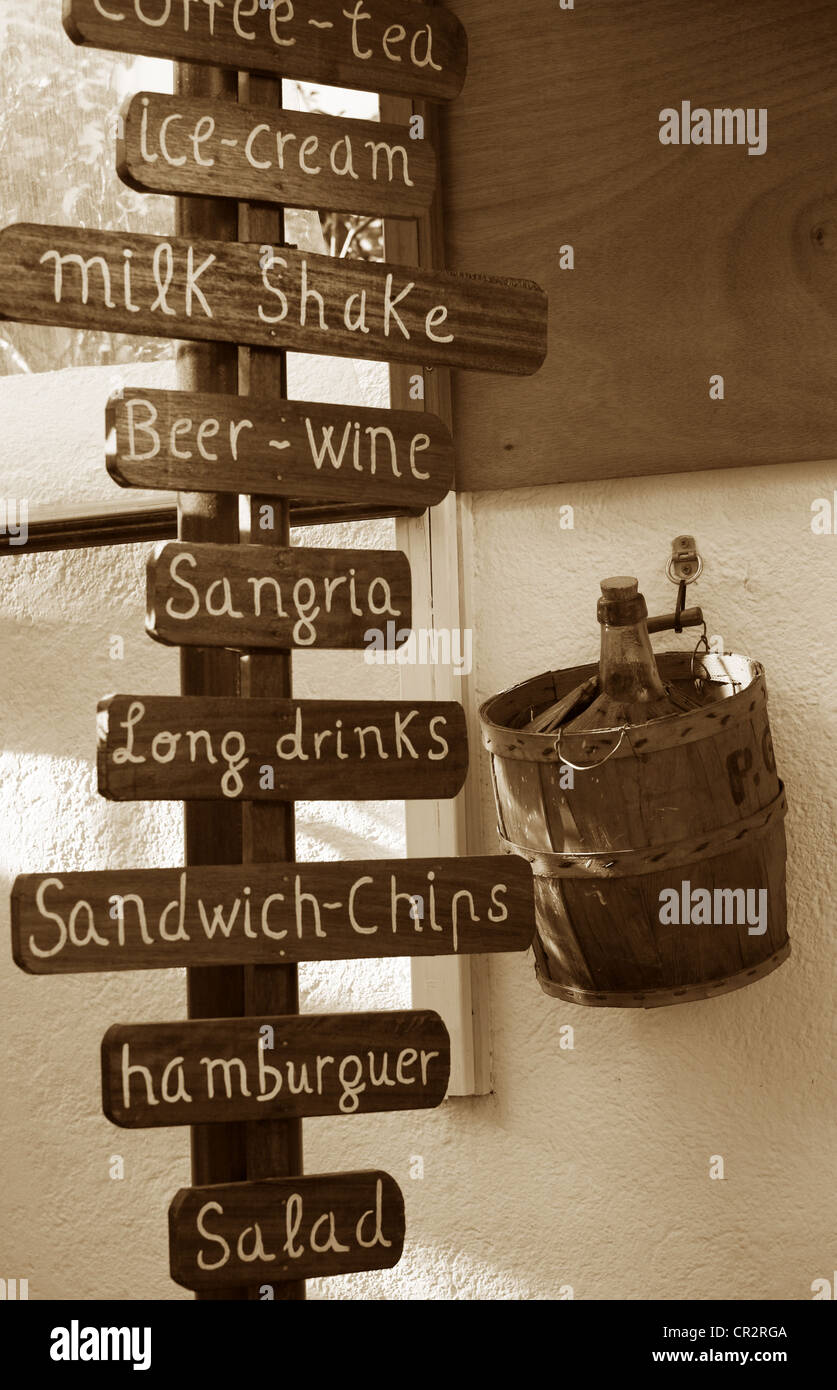 Coffee~tea
ice-cream
milk Shake
Beer~Wine
Sangria
Long drinKS
Sandwich-Chips
hamburguer
Salad
alamy
Image ID: CR2RGA
www.alamy.com